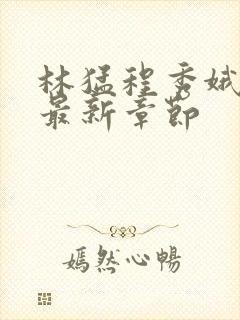 林猛程秀娥
最新章節
嫣然心暢